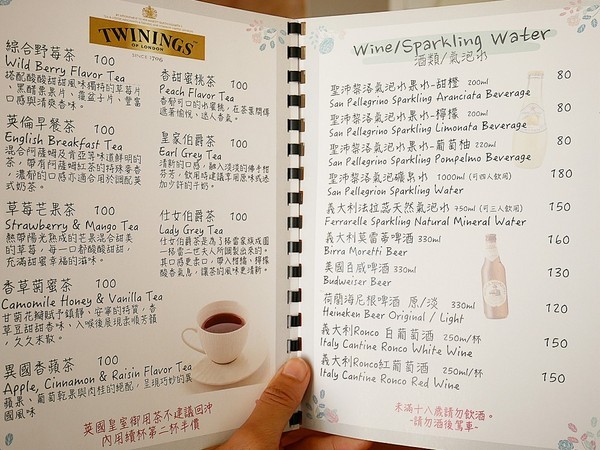 TWININGS
OF LONDON
SINCE 1706
綜合野莓茶 100
Wild Berry Flavor Tea
搭配酸酸甜甜風味獨特的草莓片
、黑醋栗果片、覆盆子片,豐富
口感與清爽香味。
英倫早餐茶 100
English Breakfast Tea
混合阿薩姆及肯亞等味道鮮明的
茶,帶有阿薩姆紅茶的特殊麥香
,濃郁的口感亦適合用於調配英
式奶茶。
草莓芒果茶 100
Strawberry & Mango Tea
熱帶陽光熟成的芒果混合甜美
的草莓,每一口都酸酸甜甜,
充滿甜蜜幸福的滋味。
香草菌蜜茶 100
Camomile Honey & Vanilla Tea
甘菊花糊賦予鎮靜、安寧的特質,香
草豆甜甜香味,入喉後展現柔順芳韻
,久久未散。
異國香蘋茶 100
Apple, Cinnamon & Raisin Flavor Tea
蘋果、葡萄乾果與肉桂的絶配,呈現巧妙的異
國風味
香甜蜜桃茶 100
Peach Flavor Tea
香郁可口的水蜜桃,在茶葉間傳
遞著愉悅、迷人香氣。
皇家伯爵茶 100
Earl Grey Tea
清新的口感,融入淡淡的佛手柑
芬芳,飲用時建議享用原味或添
加少許的牛奶。
仕女伯爵茶 100
Lady Grey Tea
仕女伯爵茶是為了格雷家族成員
格雷二世夫人所調製出來的。
其口感更柔口,帶入柑橘、檸檬
酸香氣息,讓茶的風味更清新。
英國皇室御用茶不建議回沖
內用續杯第二杯半價
Wine/Sparkling Water
酒類/氣泡水
聖沛黎洛氣泡水果水-甜橙 200ml 80
San Pellegrino Sparkling Aranciata Beverage
聖沛黎洛氣泡水果水-檸檬 200ml 80
San Pellegrino Sparkling Limonata Beverage
聖沛黎洛氣泡水果水-葡萄柚 220ml 80
San Pellegrino Sparkling Pompelmo Beverage
聖沛黎洛氣泡礦泉水 1000ml (可四人飲用) 180
San Pellegrion Sparkling Water
義大利法拉蕊天然氣泡水 750ml (可三人飲用) 150
Ferrarelle Sparkling Natural Mineral Water
義大利莫雷蒂啤酒 330ml 160
Birra Moretti Beer
美國百威啤酒 330ml 130
Budweiser Beer
荷蘭海尼根啤酒 原/淡 330ml 120
Heineken Beer Original / Light
義大利Ronco 白葡萄酒 250ml/杯 150
Italy Cantine Ronco White Wine
義大利Ronco紅葡萄酒 250ml/杯 150
Italy Cantine Ronco Red Wine
未滿十八歲請勿飲酒。
-請勿酒後駕車-